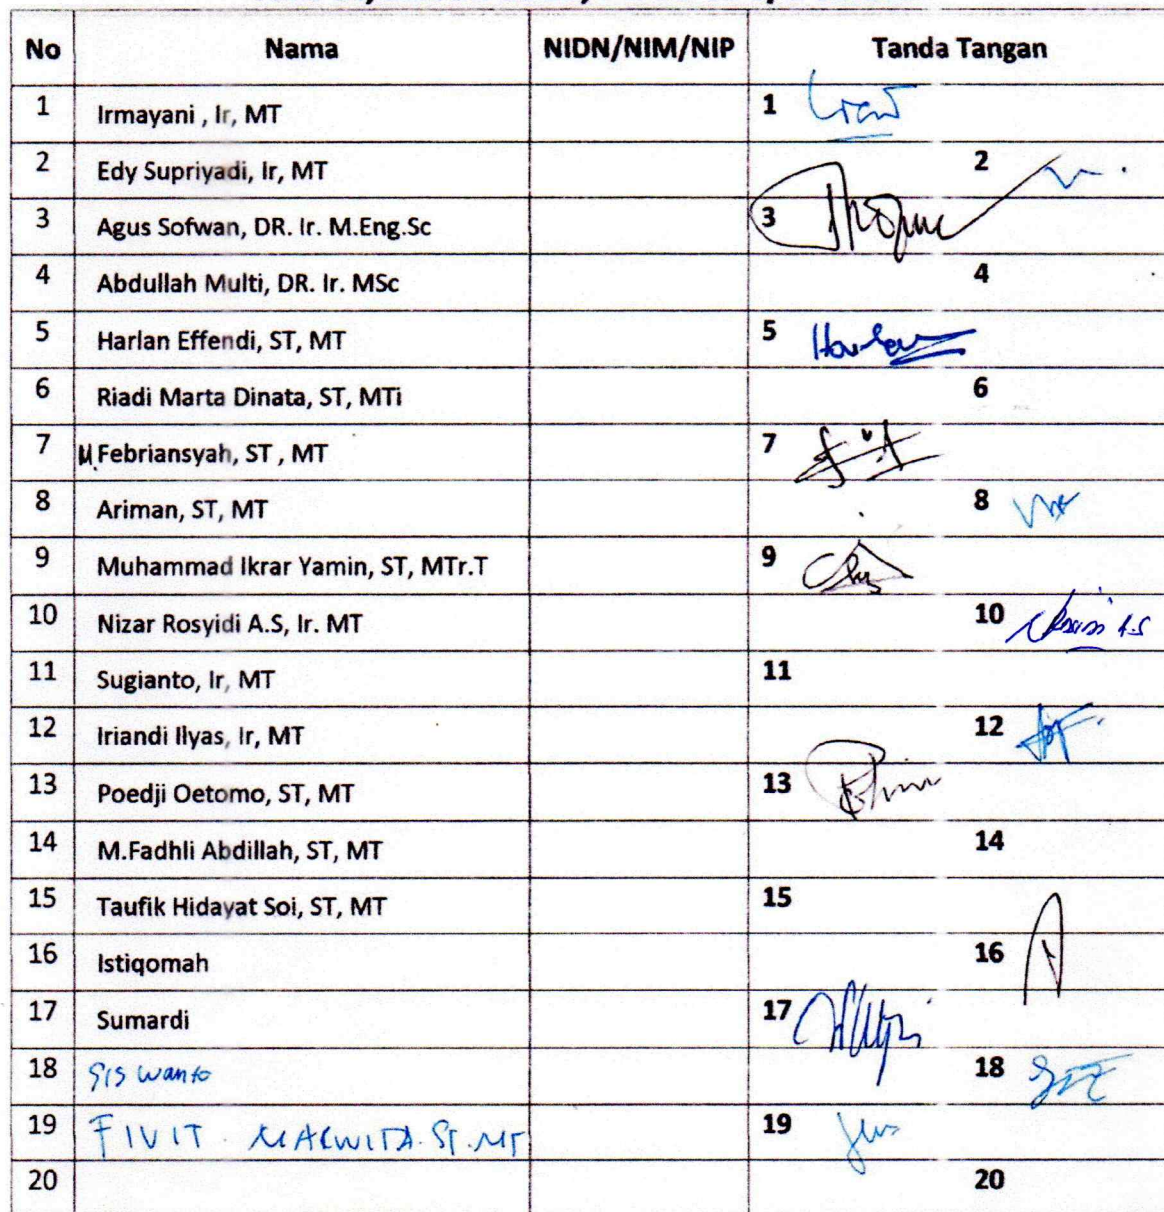 No Nama NIDN/NIM/NIP Tanda Tangan
1 Irmayani , Ir, MT 1
2 Edy Supriyadi, Ir, MT 2
3 Agus Sofwan, DR. Ir. M.Eng.Sc 3
4 Abdullah Multi, DR. Ir. MSc 4
5 Harlan Effendi, ST, MT 5 Harlan
6 Riadi Marta Dinata, ST, MTi 6
7 M. Febriansyah, ST , MT 7
8 Ariman, ST, MT 8
9 Muhammad Ikrar Yamin, ST, MTr.T 9
10 Nizar Rosyidi A.S, Ir. MT 10
11 Sugianto, Ir, MT 11
12 Iriandi Ilyas, Ir, MT 12
13 Poedji Oetomo, ST, MT 13
14 M.Fadhli Abdillah, ST, MT 14
15 Taufik Hidayat Soi, ST, MT 15
16 Istiqomah 16
17 Sumardi 17
18 Siswanto 18
19 FIVIT MARWITA. ST. MT 19
20 20